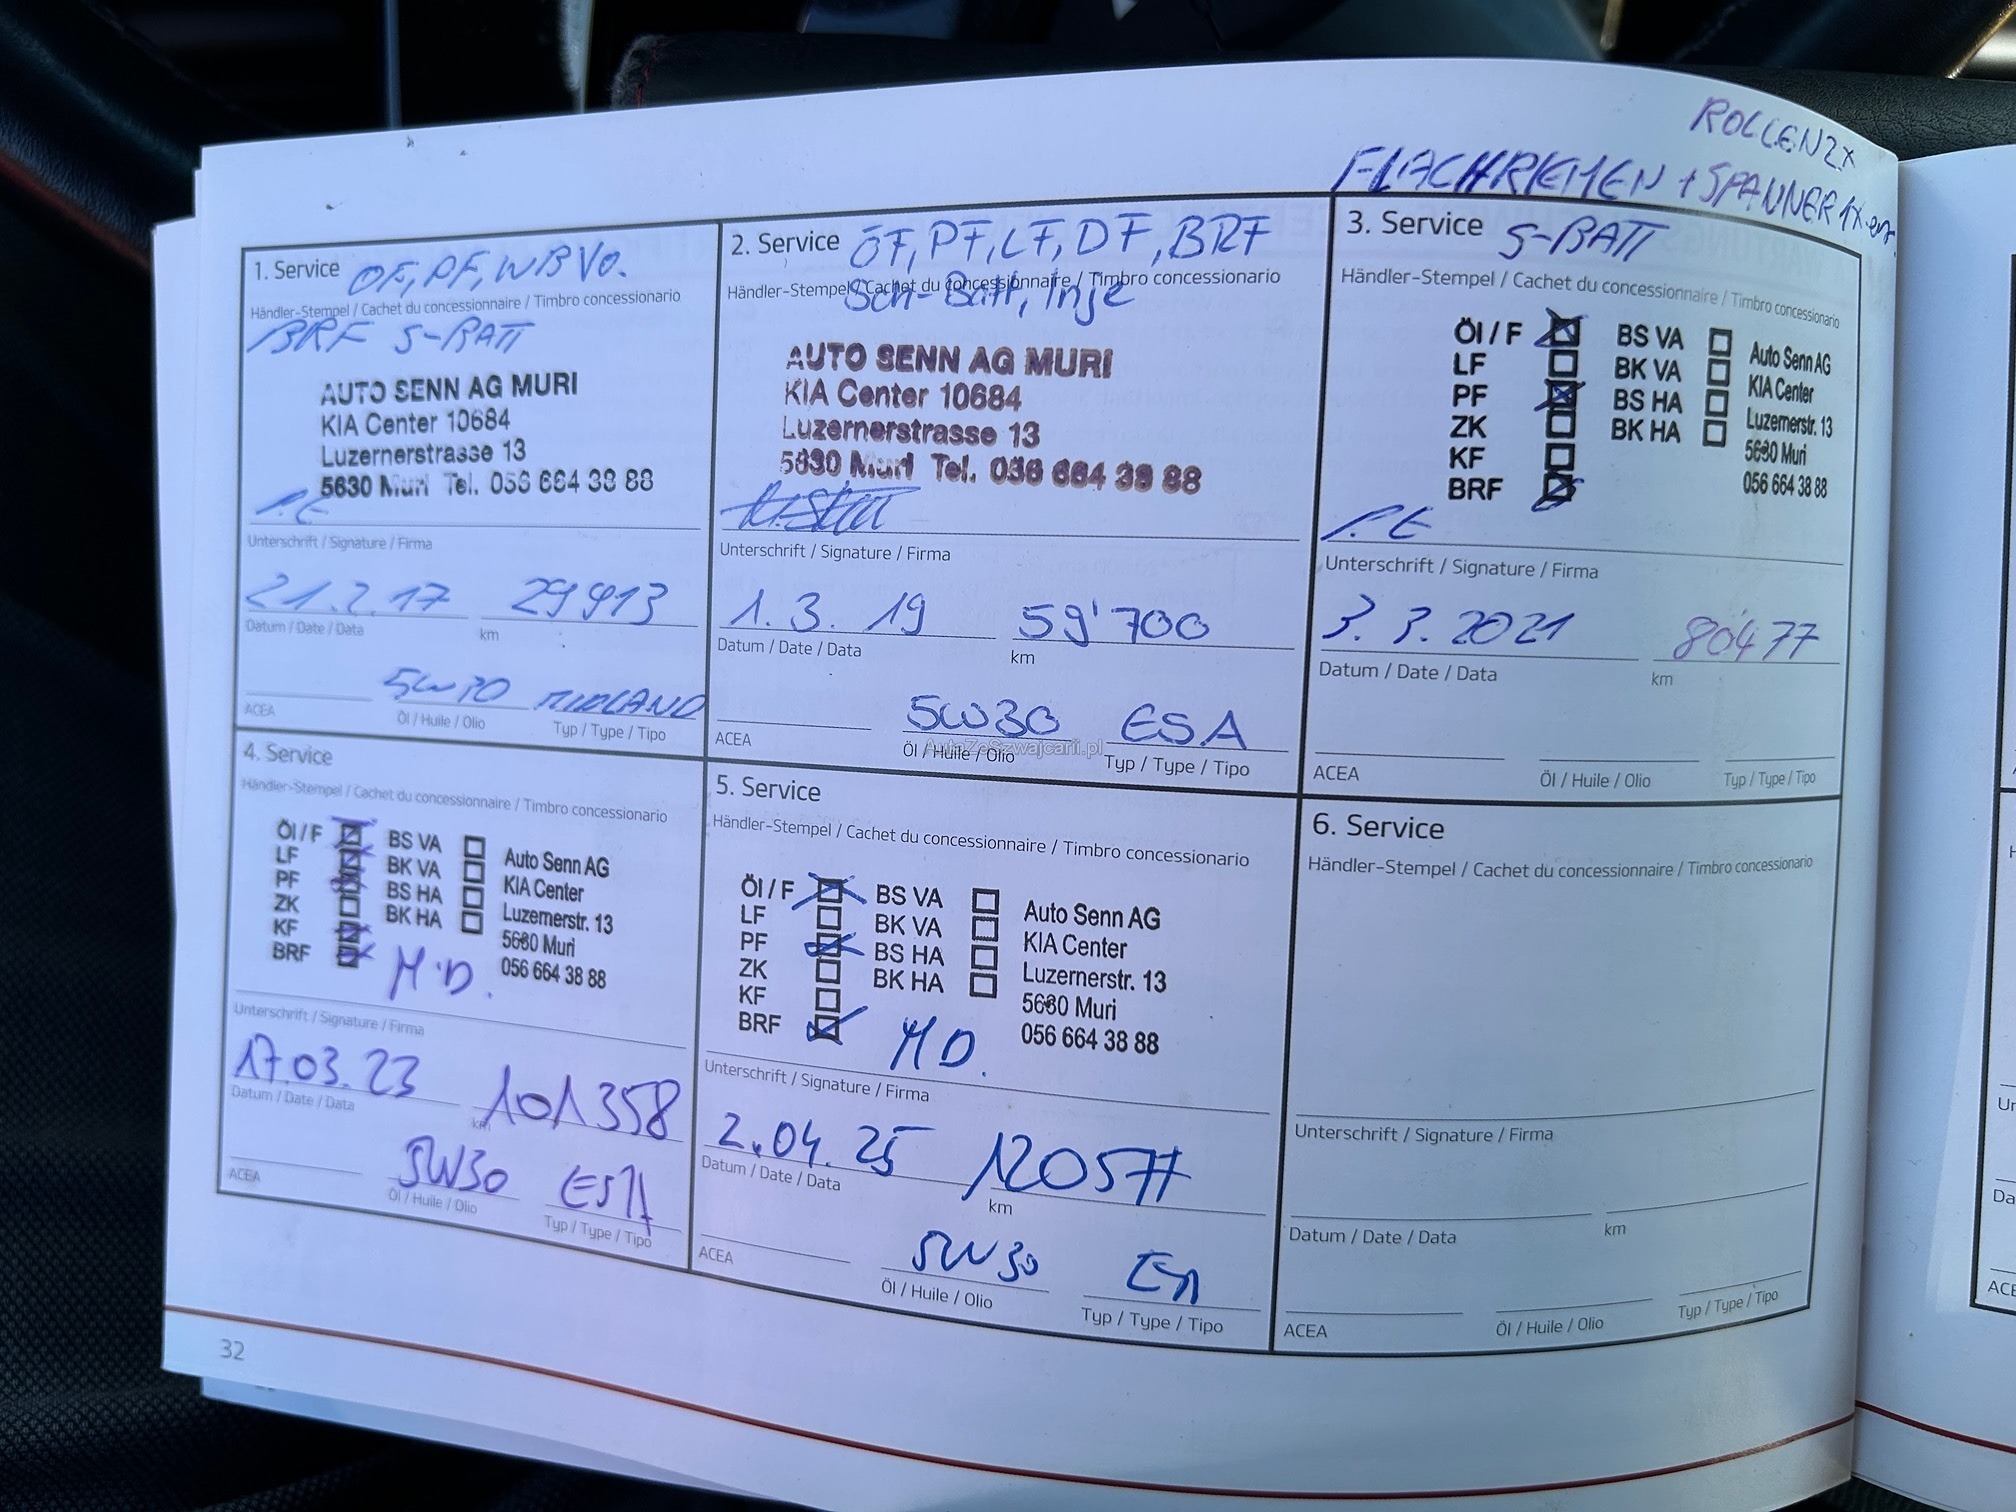 ROLLEN 2x
FLACHRIEMEN + SPANNER 1x
1. Service ÖF, PF, WB VO.
Händler-Stempel / Cachet du concessionnaire / Timbro concessionario
BRF S-BATT
AUTO SENN AG MURI
KIA Center 10684
Luzernerstrasse 13
5630 Muri Tel. 056 664 38 88
P.E
Unterschrift / Signature / Firma
21.2.17 29913
Datum / Date / Data km
5W30 MIDLAND
ACEA Öl / Huile / Olio Typ / Type / Tipo
2. Service ÖF, PF, LF, DF, BRF
Händler-Stempel / Cachet du concessionnaire / Timbro concessionario
Sch-Batt, Inje
AUTO SENN AG MURI
KIA Center 10684
Luzernerstrasse 13
5630 Muri Tel. 056 664 38 88
Unterschrift / Signature / Firma
1. 3. 19 59'700
Datum / Date / Data km
5W30 ESA
ACEA Öl / Huile / Olio Typ / Type / Tipo
AutaZeSzwajcarii.pl
3. Service S-BATT
Händler-Stempel / Cachet du concessionnaire / Timbro concessionario
Öl / F BS VA Auto Senn AG
LF BK VA KIA Center
PF BS HA Luzernerstr. 13
ZK BK HA 5630 Muri
KF 056 664 38 88
BRF
P.E
Unterschrift / Signature / Firma
3. 3. 2021 80'477
Datum / Date / Data km
ACEA Öl / Huile / Olio Typ / Type / Tipo
4. Service
Händler-Stempel / Cachet du concessionnaire / Timbro concessionario
Öl / F BS VA Auto Senn AG
LF BK VA KIA Center
PF BS HA Luzernerstr. 13
ZK BK HA 5630 Muri
KF 056 664 38 88
BRF M.D.
Unterschrift / Signature / Firma
17.03.23 101358
Datum / Date / Data km
5W30 ESA
ACEA Öl / Huile / Olio Typ / Type / Tipo
5. Service
Händler-Stempel / Cachet du concessionnaire / Timbro concessionario
Öl / F BS VA Auto Senn AG
LF BK VA KIA Center
PF BS HA Luzernerstr. 13
ZK BK HA 5630 Muri
KF 056 664 38 88
BRF M D.
Unterschrift / Signature / Firma
2.04.25 120577
Datum / Date / Data km
5W30 ESA
ACEA Öl / Huile / Olio Typ / Type / Tipo
6. Service
Händler-Stempel / Cachet du concessionnaire / Timbro concessionario
Unterschrift / Signature / Firma
Datum / Date / Data km
ACEA Öl / Huile / Olio Typ / Type / Tipo
32